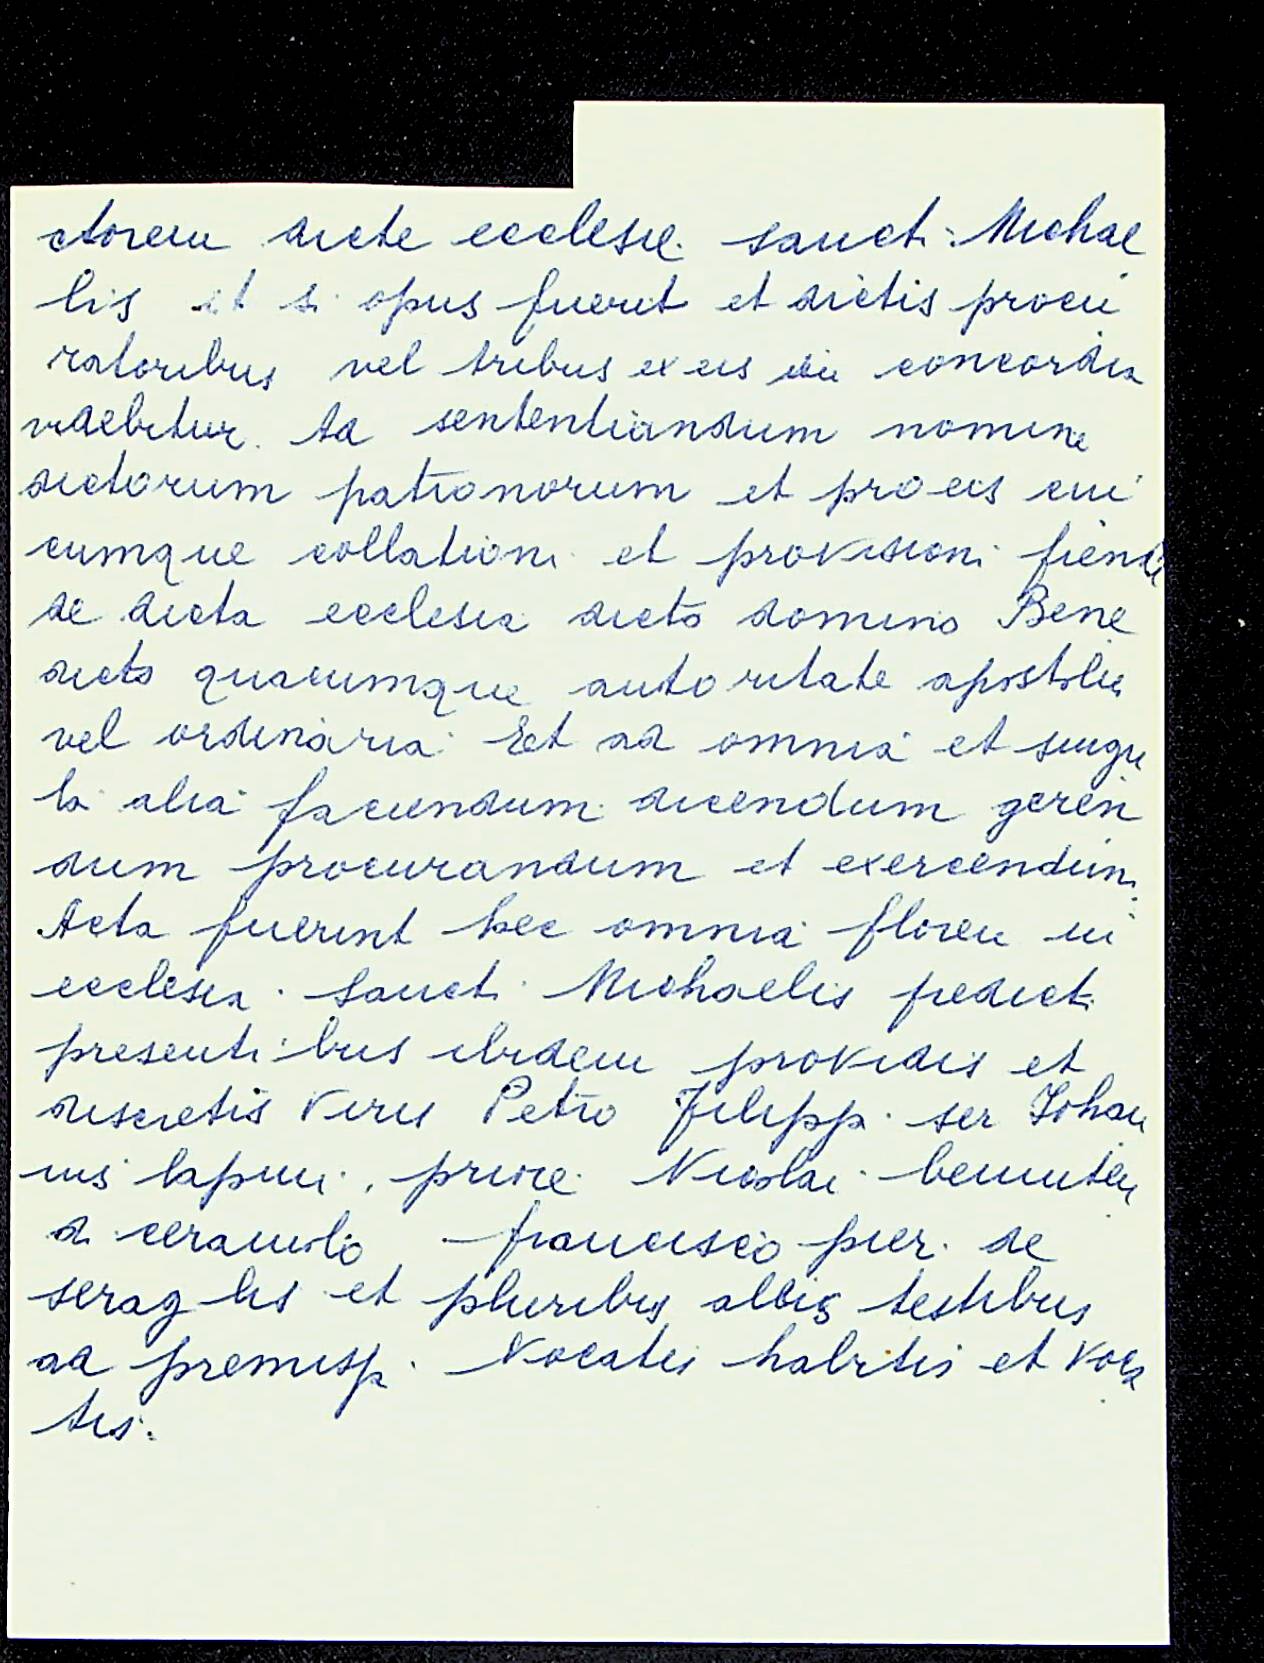 ctorem dicte ecclesie sancti Michae
lis et si opus fuerit et dictis procu
ratoribus vel tribus ex eis in concordia
videbitur. Ad sententiandum nomine
dictorum patronorum et pro eis cui
cumque collationi et provisioni fiende
de dicta ecclesia dicto domino Bene
dicto quacumque autoritate apostolica
vel ordinaria Et ad omnia et singu
la alia faciendum dicendum geren
dum procurandum et exercendum.
Acta fuerint hec omnia floren in
ecclesia sancti Michaelis predict.
presentibus ibidem providis et
discretis viris Petro Filipp. ser Johan
nis lapini, Nicolai
francisco pier. de
seraglis et pluribus aliis testibus
ad premissa. Vocatis habitis et voca
tis.